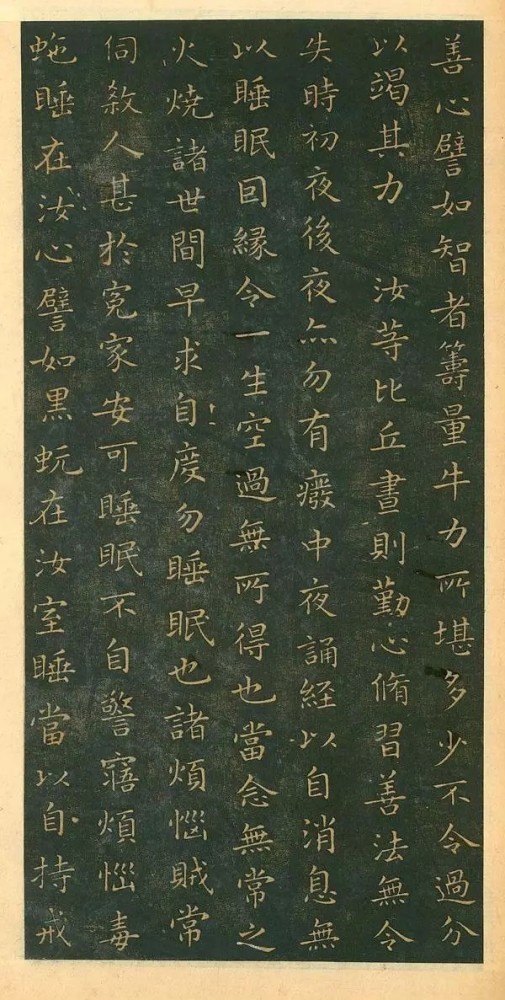 善心譬如智者籌量牛力所堪多少不令過分
以竭其力　汝等比丘晝則勤心脩習善法無令
失時初夜後夜亦勿有癈中夜誦経以自消息無
以睡眠因縁令一生空過無所得也當念無常之
火燒諸世間早求自度勿睡眠也諸煩惱賊常
伺煞人甚於冤家安可睡眠不自警寤煩惱毒
虵睡在汝心譬如黒蚖在汝室睡當以自持戒